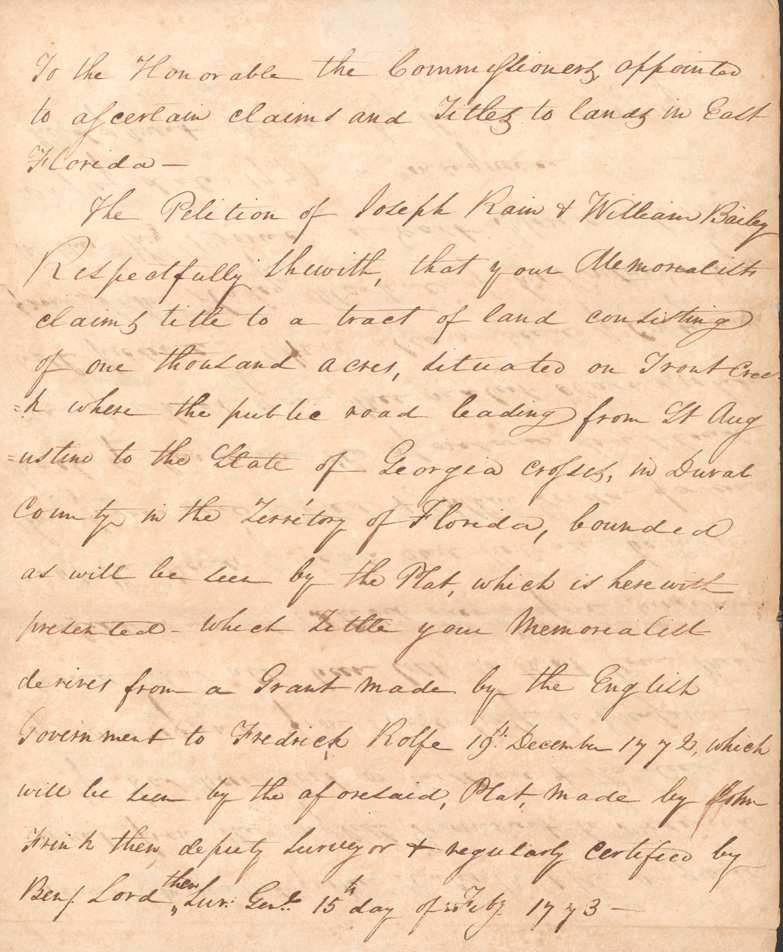 To the Honorable the Commissioners, appointed
to ascertain claims and Titles to lands in East
Florida —
The Petition of Joseph Rain & William Bailey
Respectfully Shewith, that your Memorialists
claims title to a tract of land consisting
of one thousand acres, situated on Trout Cree
=k where the public road leading from St Aug
=ustine to the State of Georgia crosses, in Duval
County in the Territory of Florida, bounded
as will be seen by the Plat, which is herewith
presented - which Tittle your Memorialist
derives from a Grant made by the English
Government to Fredrick Rolfe 19th December 1772, which
will be seen by the aforesaid, Plat, made by John
Frink then, deputy Surveyor & regularly certified by
Benj Lord then Sur: Genl. 15th day of Feby. 1773 —